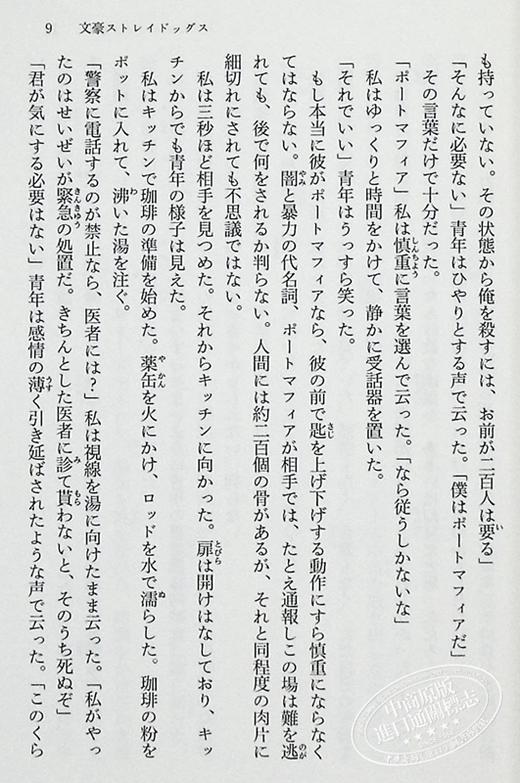 9　文豪ストレイドッグス
も持っていない。その状態から俺を殺すには、お前が二百人は要る」
「そんなに必要ない」青年はひやりとする声で云った。「僕はポートマフィアだ」
その言葉だけで十分だった。
「ポートマフィア」私は慎重に言葉を選んで云った。「なら従うしかないな」
私はゆっくりと時間をかけて、静かに受話器を置いた。
「それでいい」青年はうっすら笑った。
もし本当に彼がポートマフィアなら、彼の前で匙を上げ下げする動作にすら慎重にならなく
てはならない。闇と暴力の代名詞、ポートマフィアが相手では、たとえ通報しこの場は難を逃
れても、後で何をされるか判らない。人間には約二百個の骨があるが、それと同程度の肉片に
細切れにされても不思議ではない。
私は三秒ほど相手を見つめた。それからキッチンに向かった。扉は開けはなしており、キッ
チンからでも青年の様子は見えた。
私はキッチンで珈琲の準備を始めた。薬缶を火にかけ、ロッドを水で濡らした。珈琲の粉を
ポットに入れて、沸いた湯を注ぐ。
「警察に電話するのが禁止なら、医者には？」私は視線を湯に向けたまま云った。「私がやっ
たのはせいぜいが緊急の処置だ。きちんとした医者に診て貰わないと、そのうち死ぬぞ」
「君が気にする必要はない」青年は感情の薄く引き延ばされたような声で云った。「このくら
中商原版
进口通关标志